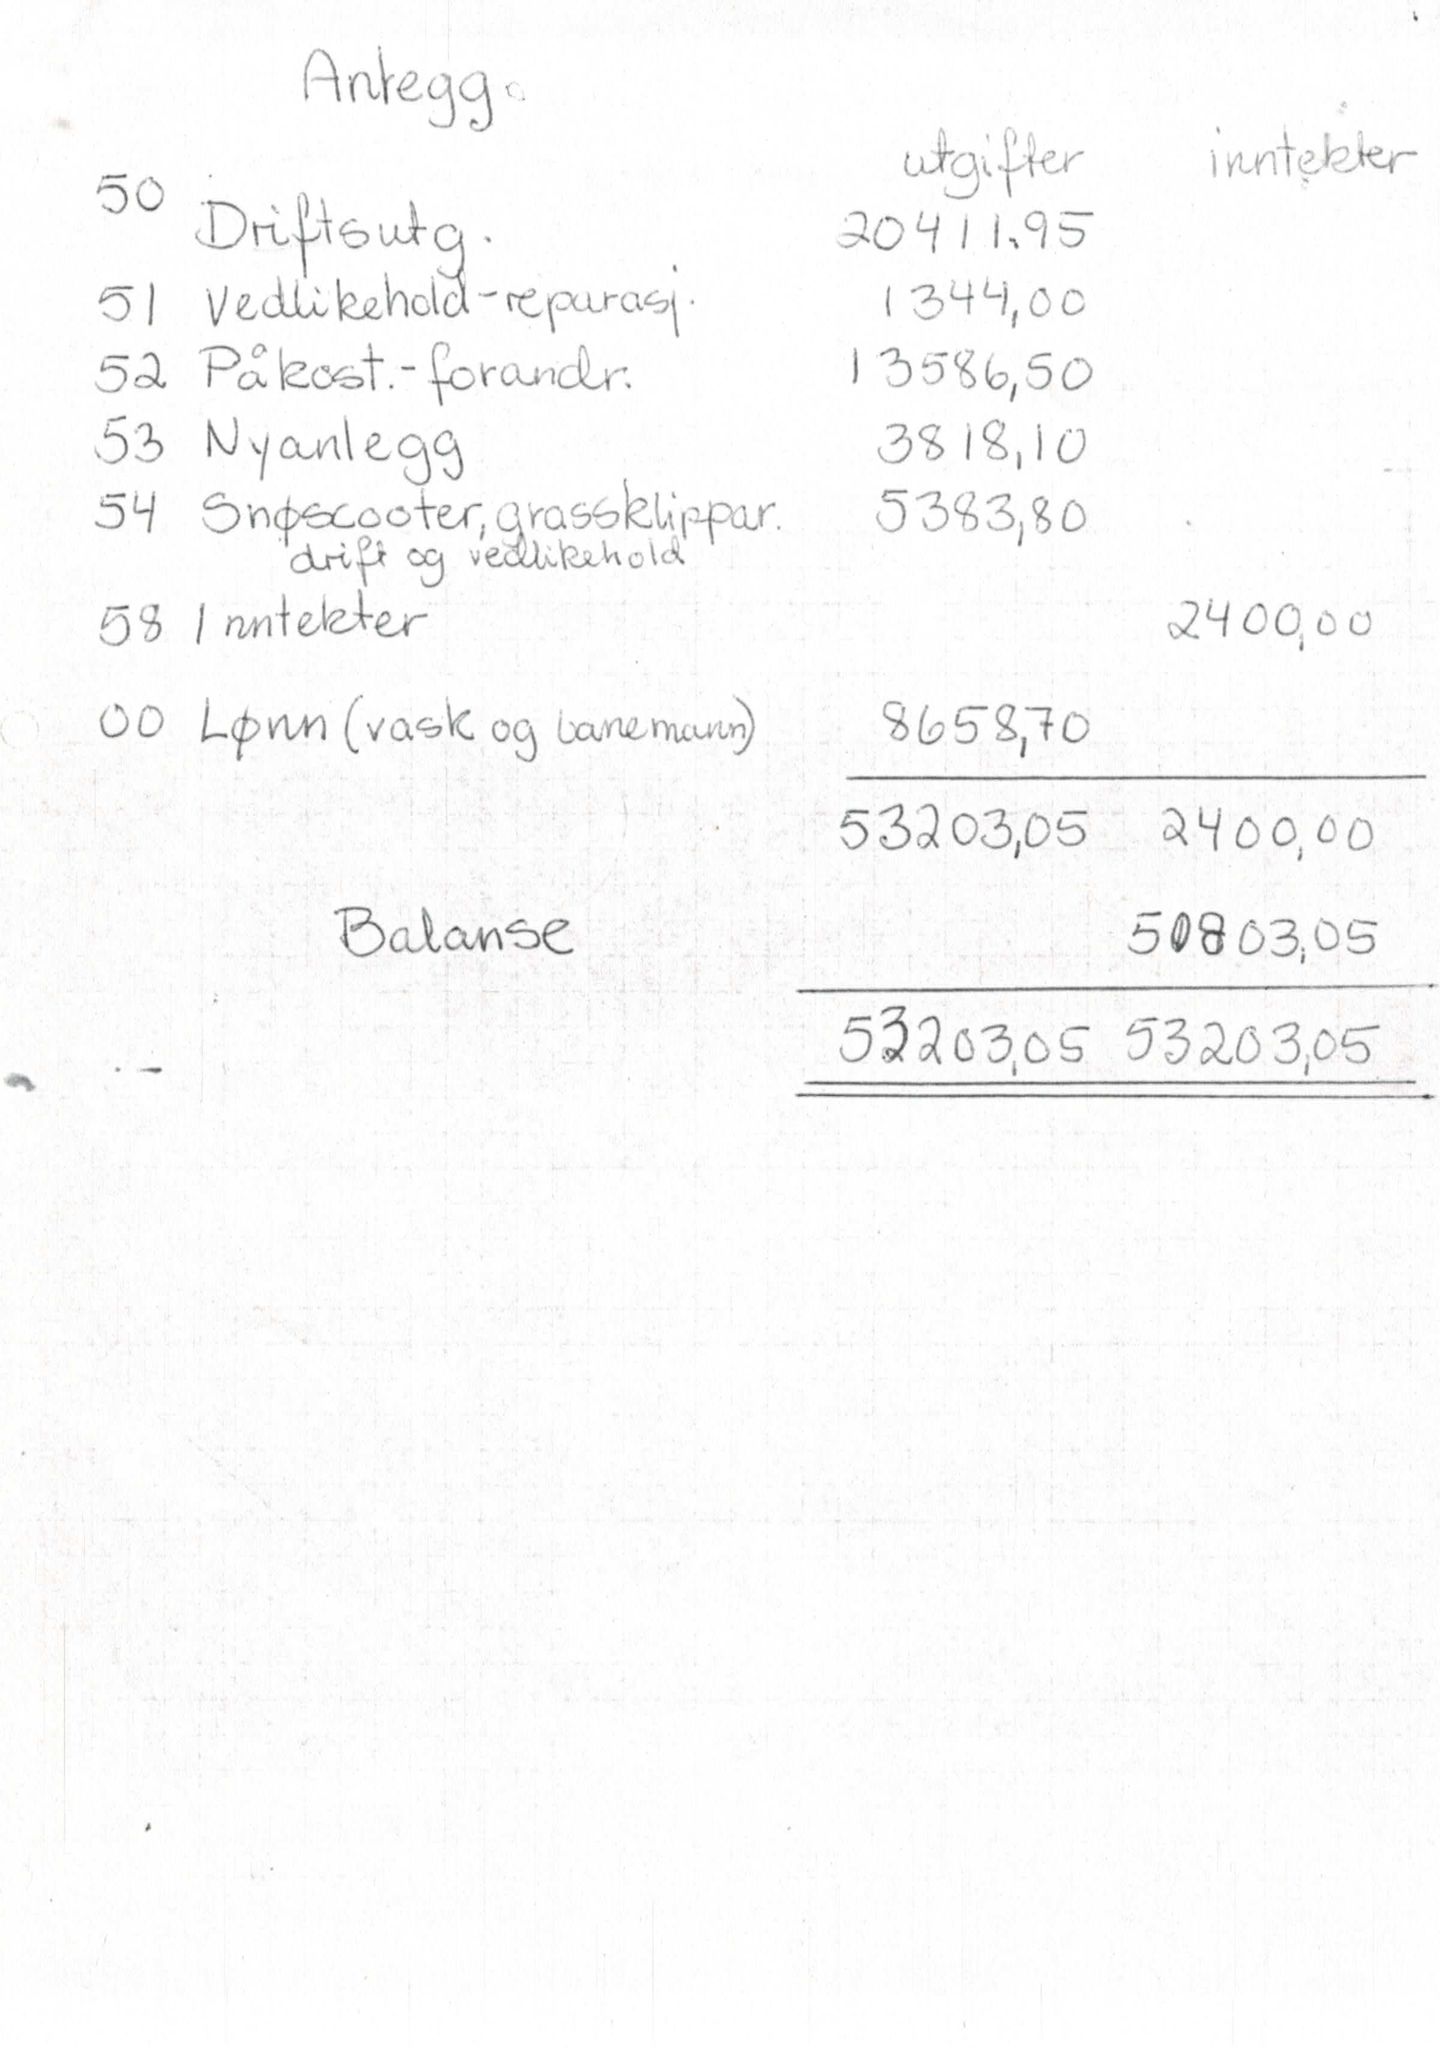 Anlegg.
utgifter inntekter
50 Driftsutg. 20411.95
51 Vedlikehold-reparasj. 1344,00
52 Påkost.-forandr. 13586,50
53 Nyanlegg 3818,10
54 Snøscooter, grassklippar. 5383,80
drift og vedlikehold
58 Inntekter 2400,00
00 Lønn (vask og banemann) 8658,70
53203,05 2400,00
Balanse 50803,05
53203,05 53203,05